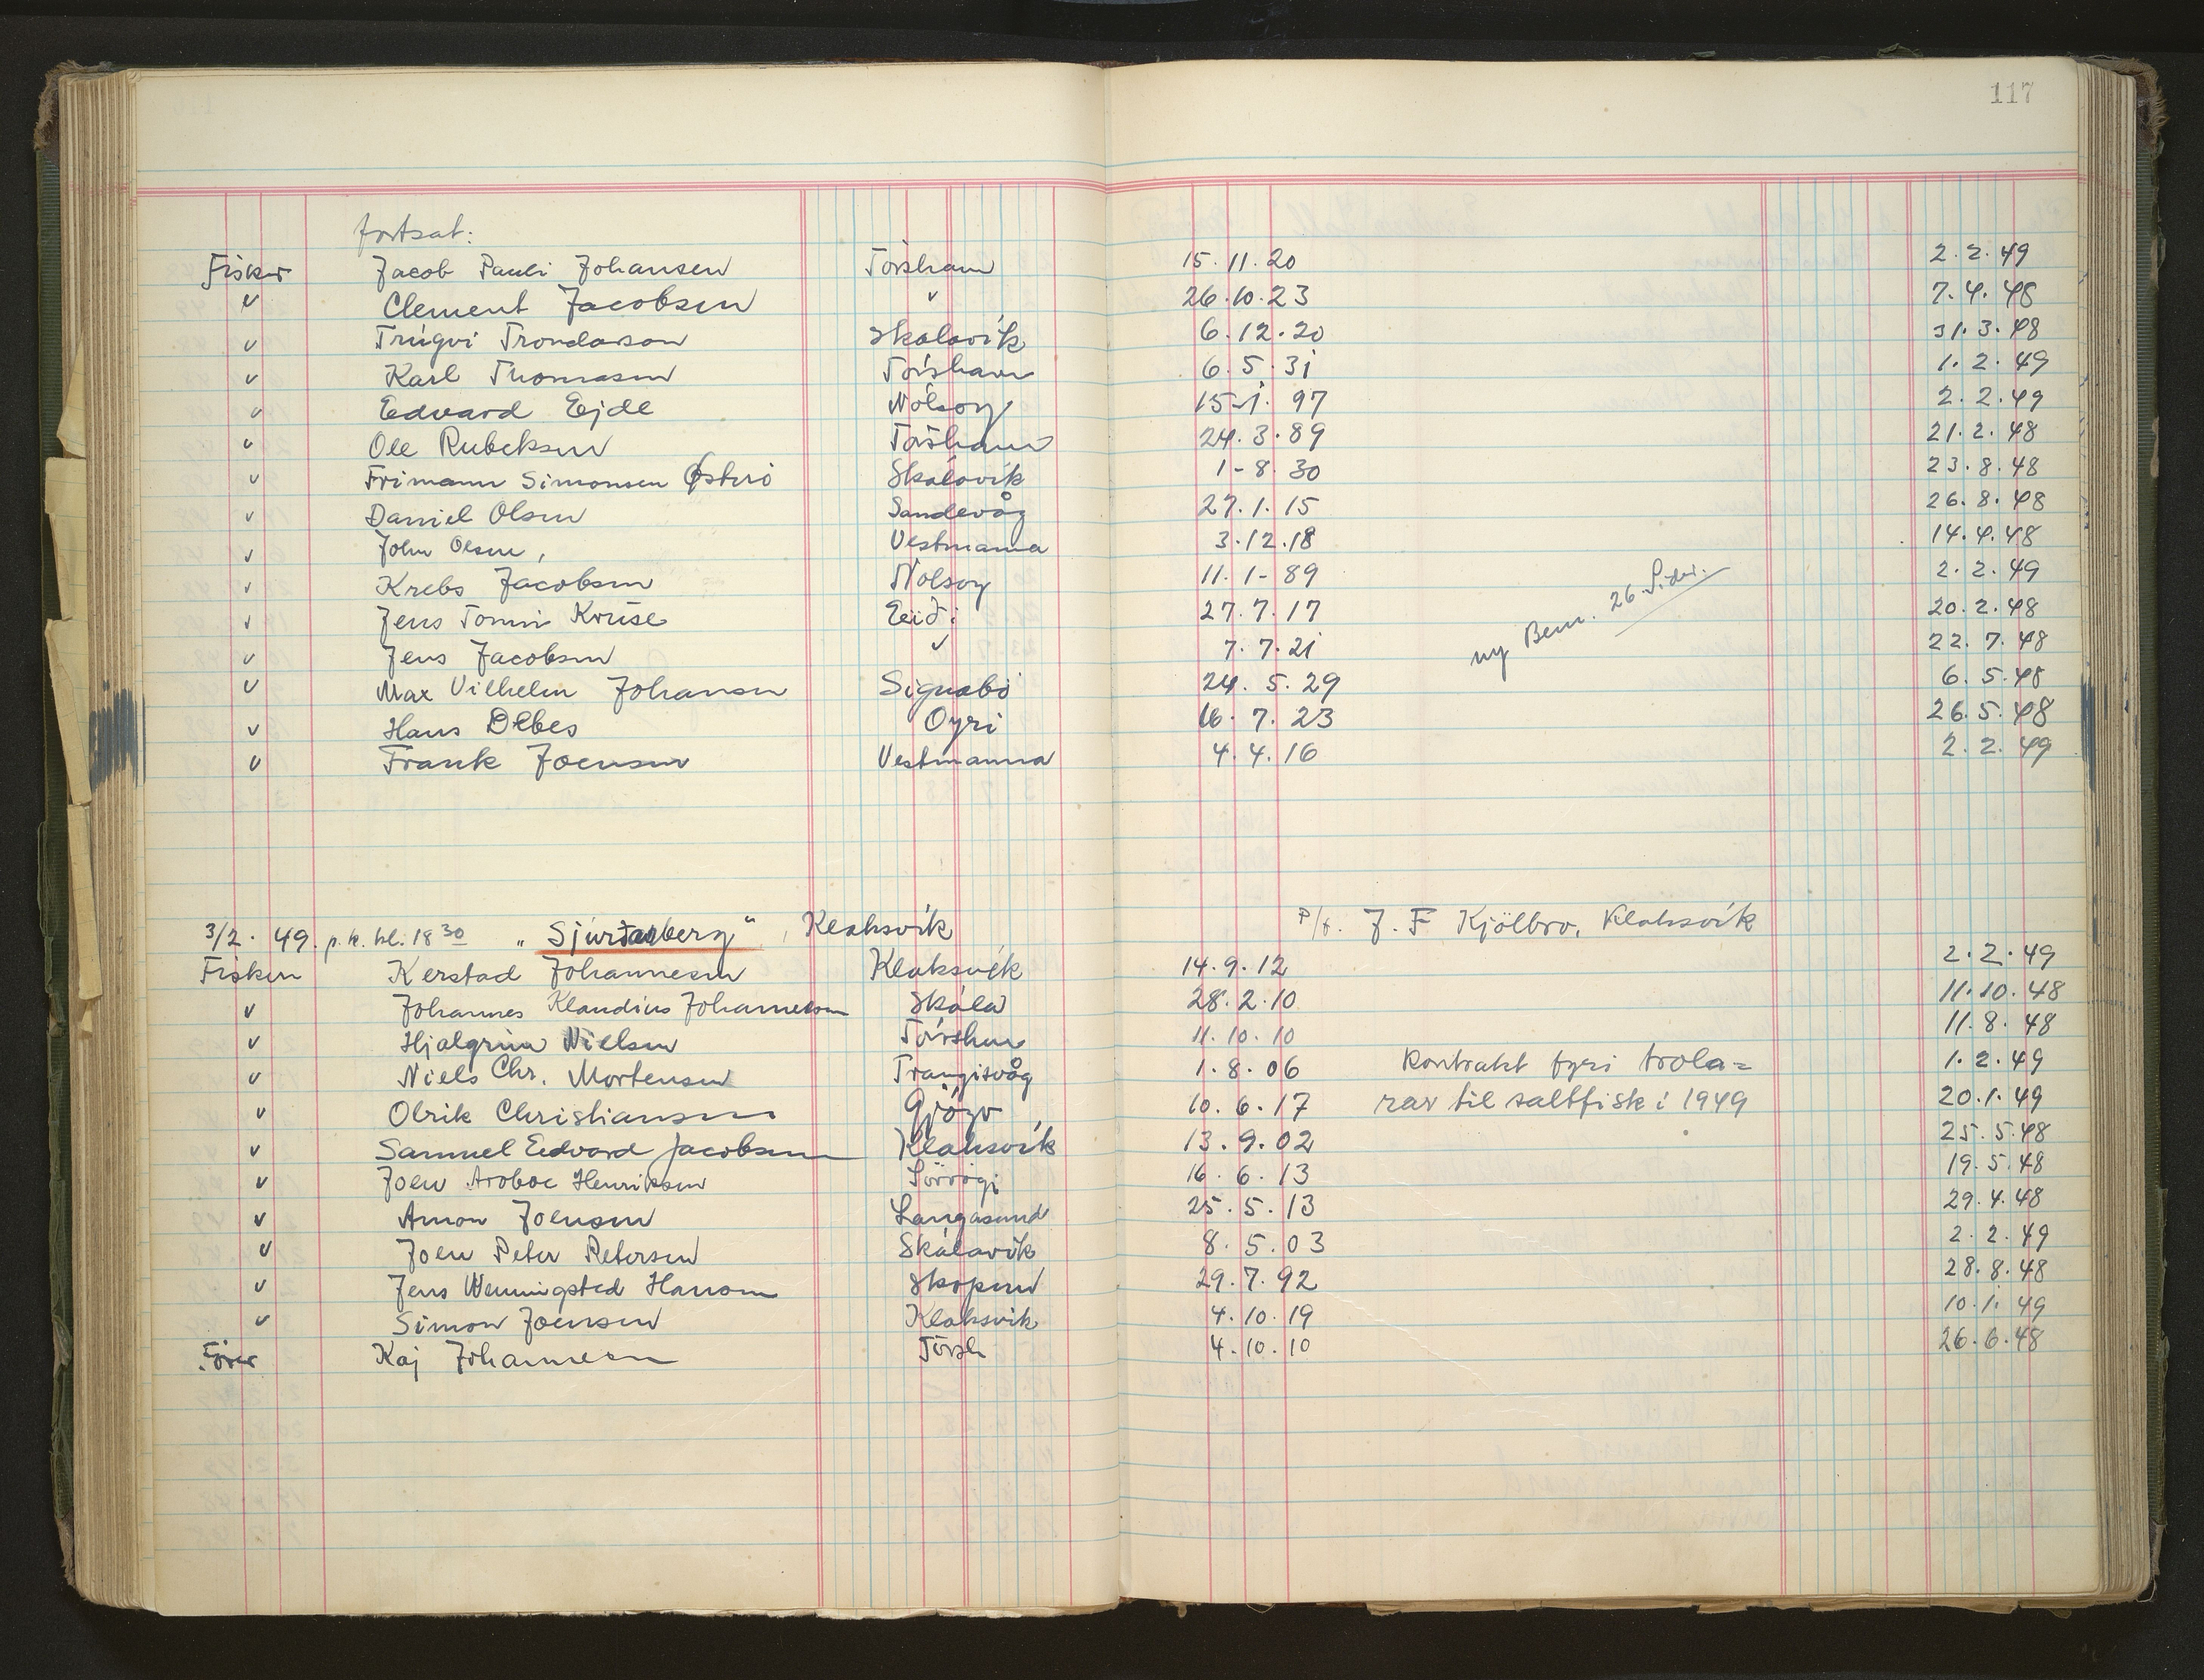 117
fortsat:
Fisker Jacob Pauli Johansen Tórshavn 15.11.20 2.2.49
" Clement Jacobsen " 26.10.23 7.4.48
" Trúgvi Trondarson Skálavík 6.12.20 31.3.48
" Karl Thomasen Tórshavn 6.5.31 1.2.49
" Edvard Ejde Nólsoy 15-1.97 2.2.49
" Ole Rubeksen Tórshavn 24.3.89 21.2.48
" Frimann Simonsen Østerö Skálavík 1-8.30 23.8.48
" Daniel Olsen Sandevåg 27.1.15 26.8.48
" John Olsen, Vestmanna 3.12.18 14.4.48
" Krebs Jacobsen Nólsoy 11.1-89 2.2.49
" Jens Tomin Kruse Eiði 27.7.17 ny Bem. 26. 20.2.48
" Jens Jacobsen " 7.7.21 22.7.48
" Max Vilhelm Johansen Signabö 24.5.29 6.5.48
" Hans Debes Oyri 16.7.23 26.5.48
" Frank Joensen Vestmanna 4.4.16 2.2.49
3/2. 49. p.k. kl. 18 30 "Sjúrðarberg", Klaksvík P/f. J. F Kjölbro, Klaksvík
Fisker Kerstad Johannesen Klaksvík 14.9.12 2.2.49
" Johannes Klaudius Johannesen Skála 28.2.10 11.10.48
" Hjalgrim Nielsen Tórshvn 11.10.10 11.8.48
" Niels Chr. Mortensen Trangisvåg 1.8.06 Kontrakt fyri trola= 1.2.49
" Olrik Christiansen Gjógv 10.6.17 rar til saltfisk í 1949 20.1.49
" Samuel Edvard Jacobsen Klaksvík 13.9.02 25.5.48
" Joen Aroboe Henriksen Sörvági 16.6.13 19.5.48
" Amon Joensen Langasand 25.5.13 29.4.48
" Joen Peter Petersen Skálavík 8.5.03 2.2.49
" Jens Wenningsted Hanson Skopun 29.7.92 28.8.48
" Simon Joensen Klaksvík 4.10.19 10.1.49
Förer Kaj Johannesen Tórsh 4.10.10 26.6.48